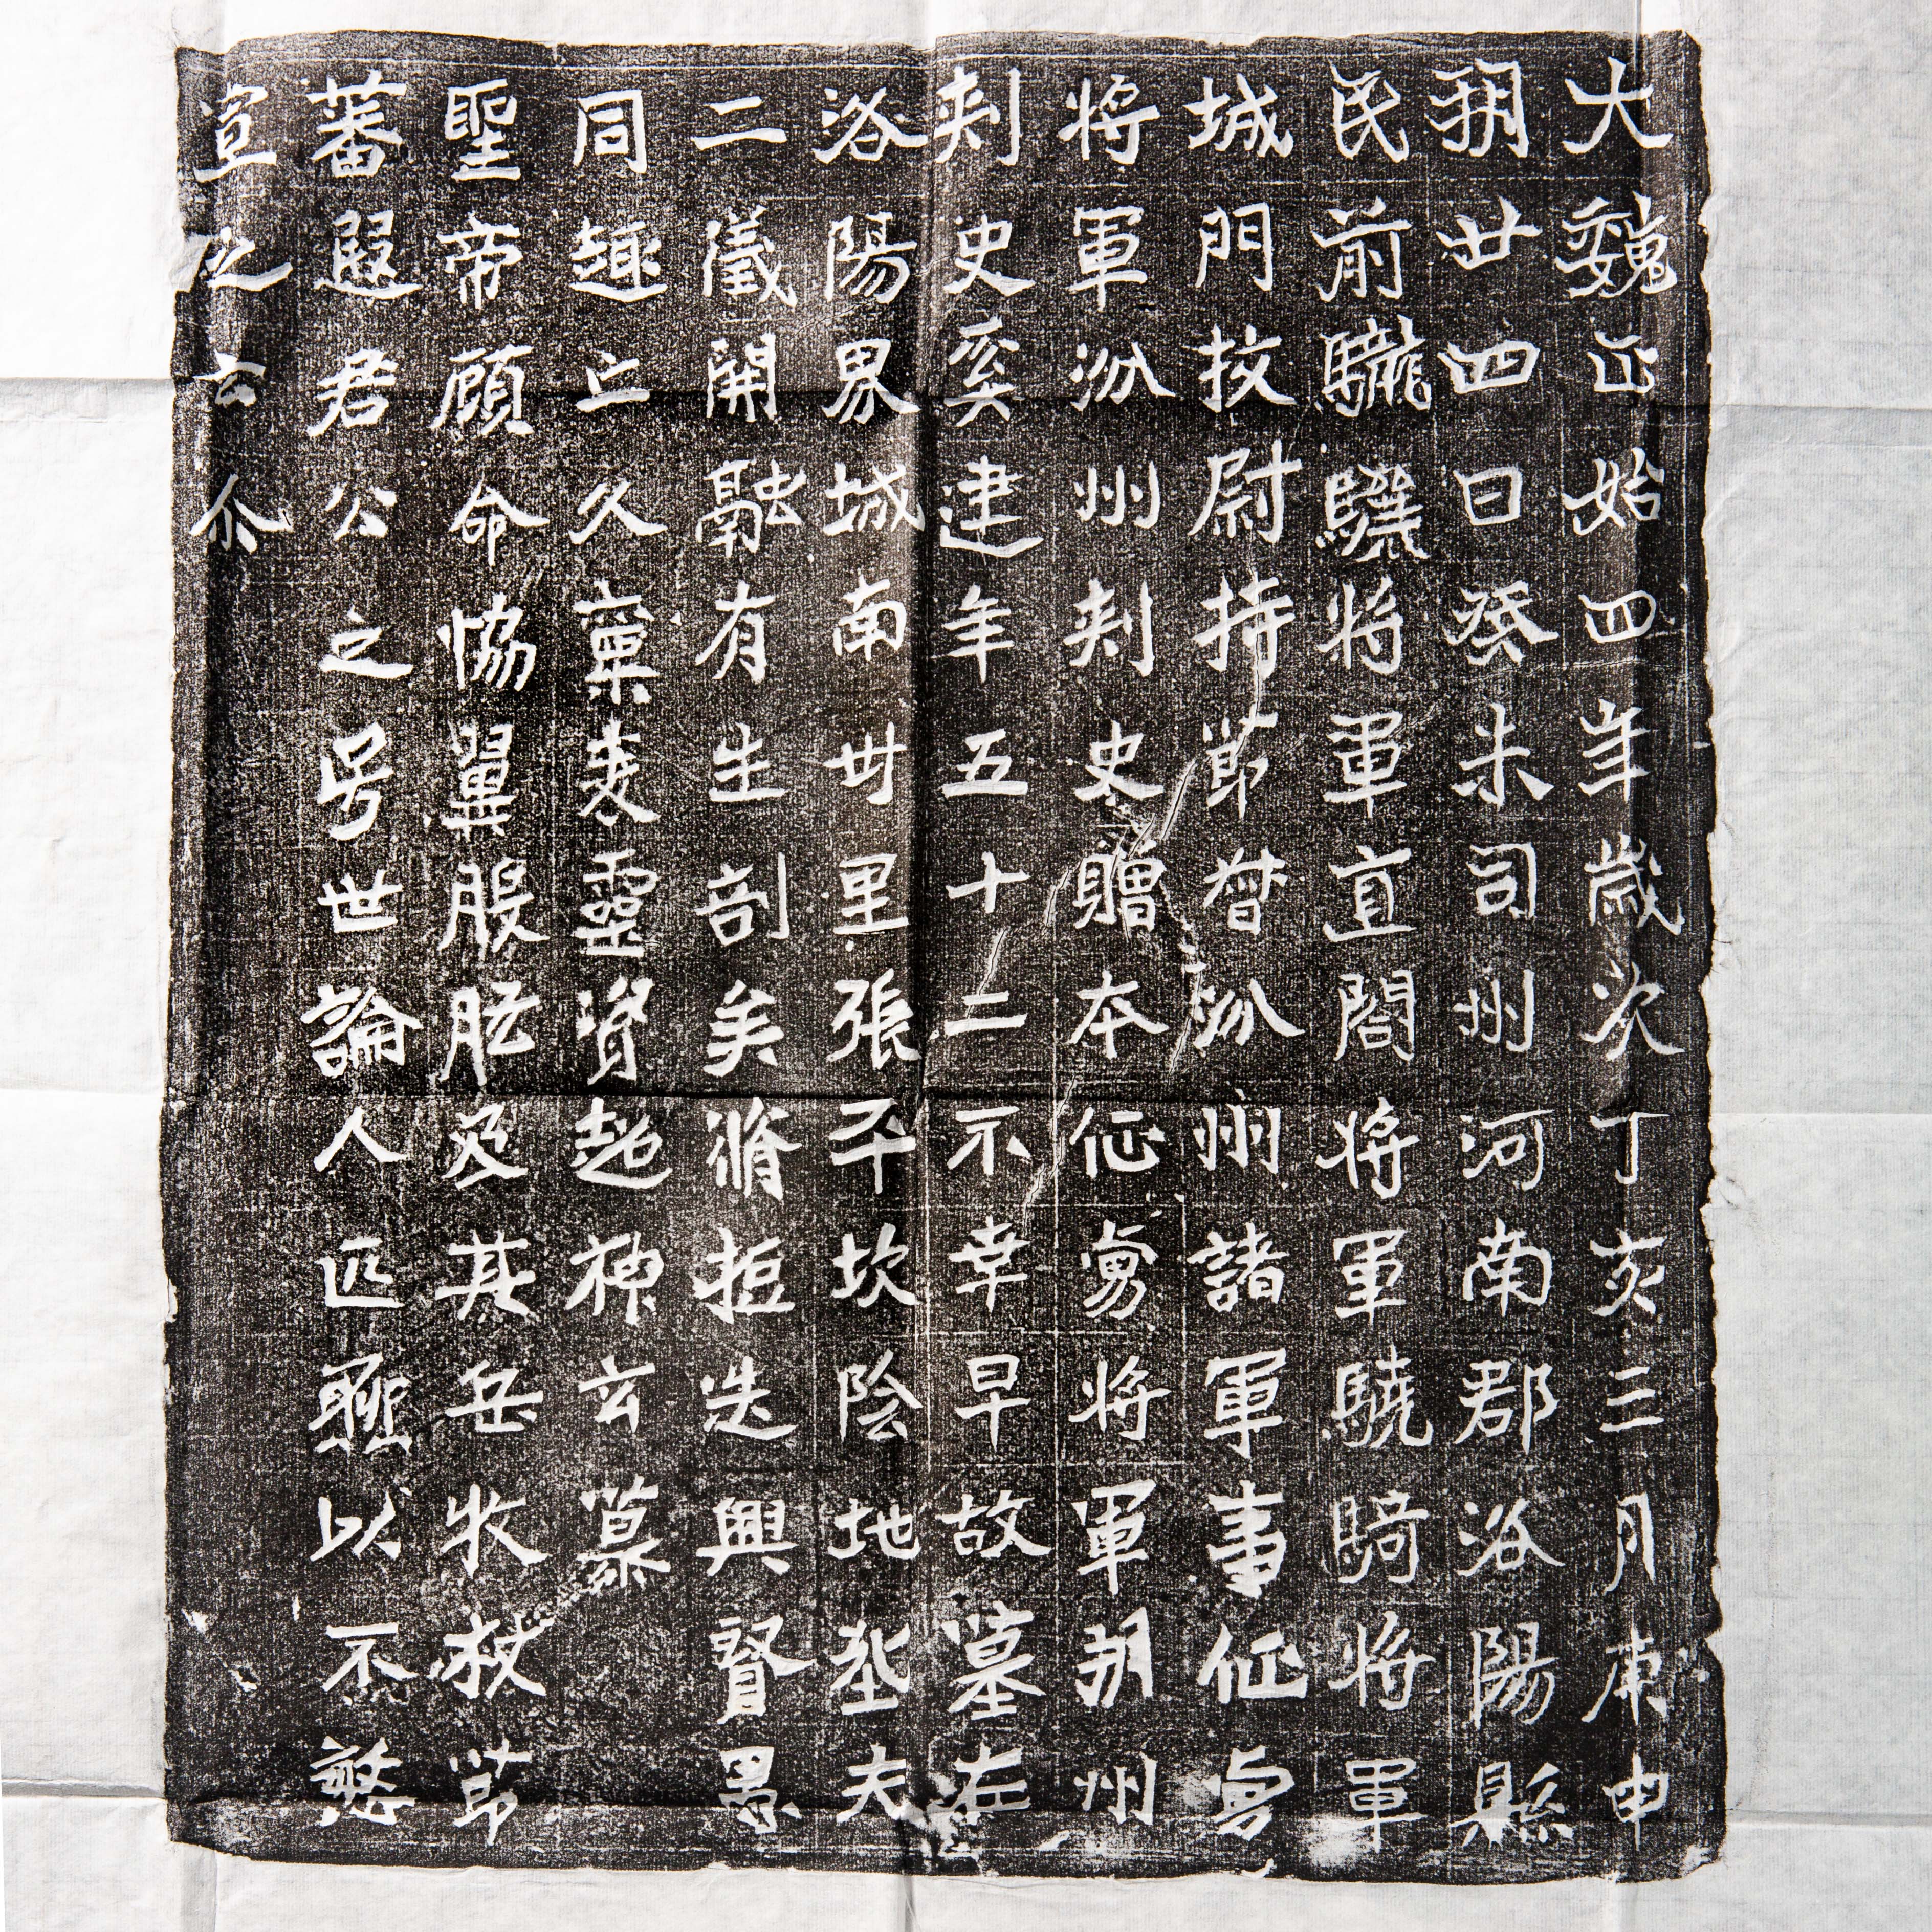 大魏正始四年歲次丁亥三月庚申
朔廿四日癸未司州河南郡洛陽縣
民前龍驤將軍直閤將軍驍騎將軍
城門挍尉持節督汾州諸軍事征虜
將軍汾州刺史贈本征虜將軍朔州
刺史奚建年五十二不幸早故墓在
洛陽界城南卅里張平坎陰地丠夫
二儀開融有生剖矣脩短迭興賢愚
同趣亡久稟表靈資起神玄慕
聖帝顧命協翼股肱及其岳牧杖節
蕃遐君公之号世論人匹聊以不憖
宣之云尒